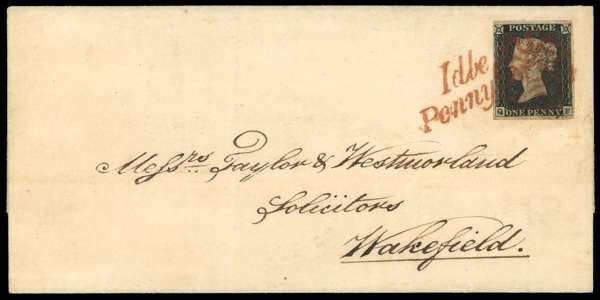 POSTAGE
Idle
Penny
ONE PENNY
Messrs. Taylor & Westmorland
Solicitors
Wakefield.